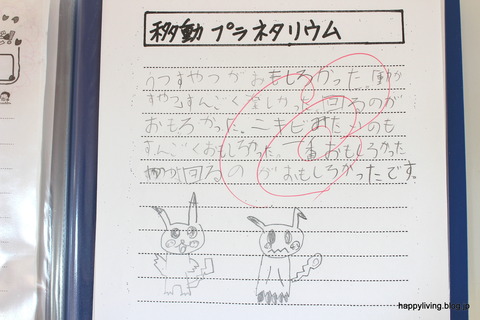 移動プラネタリウム
うつすやつがおもしろかった。動か
すやつすんごく楽しかった。回るのが
おもろかった。ニキビみたいのも
すんごくおもしろかった。一番おもしろかった
回るのがおもしろかったです。
happyliving.blog.jp